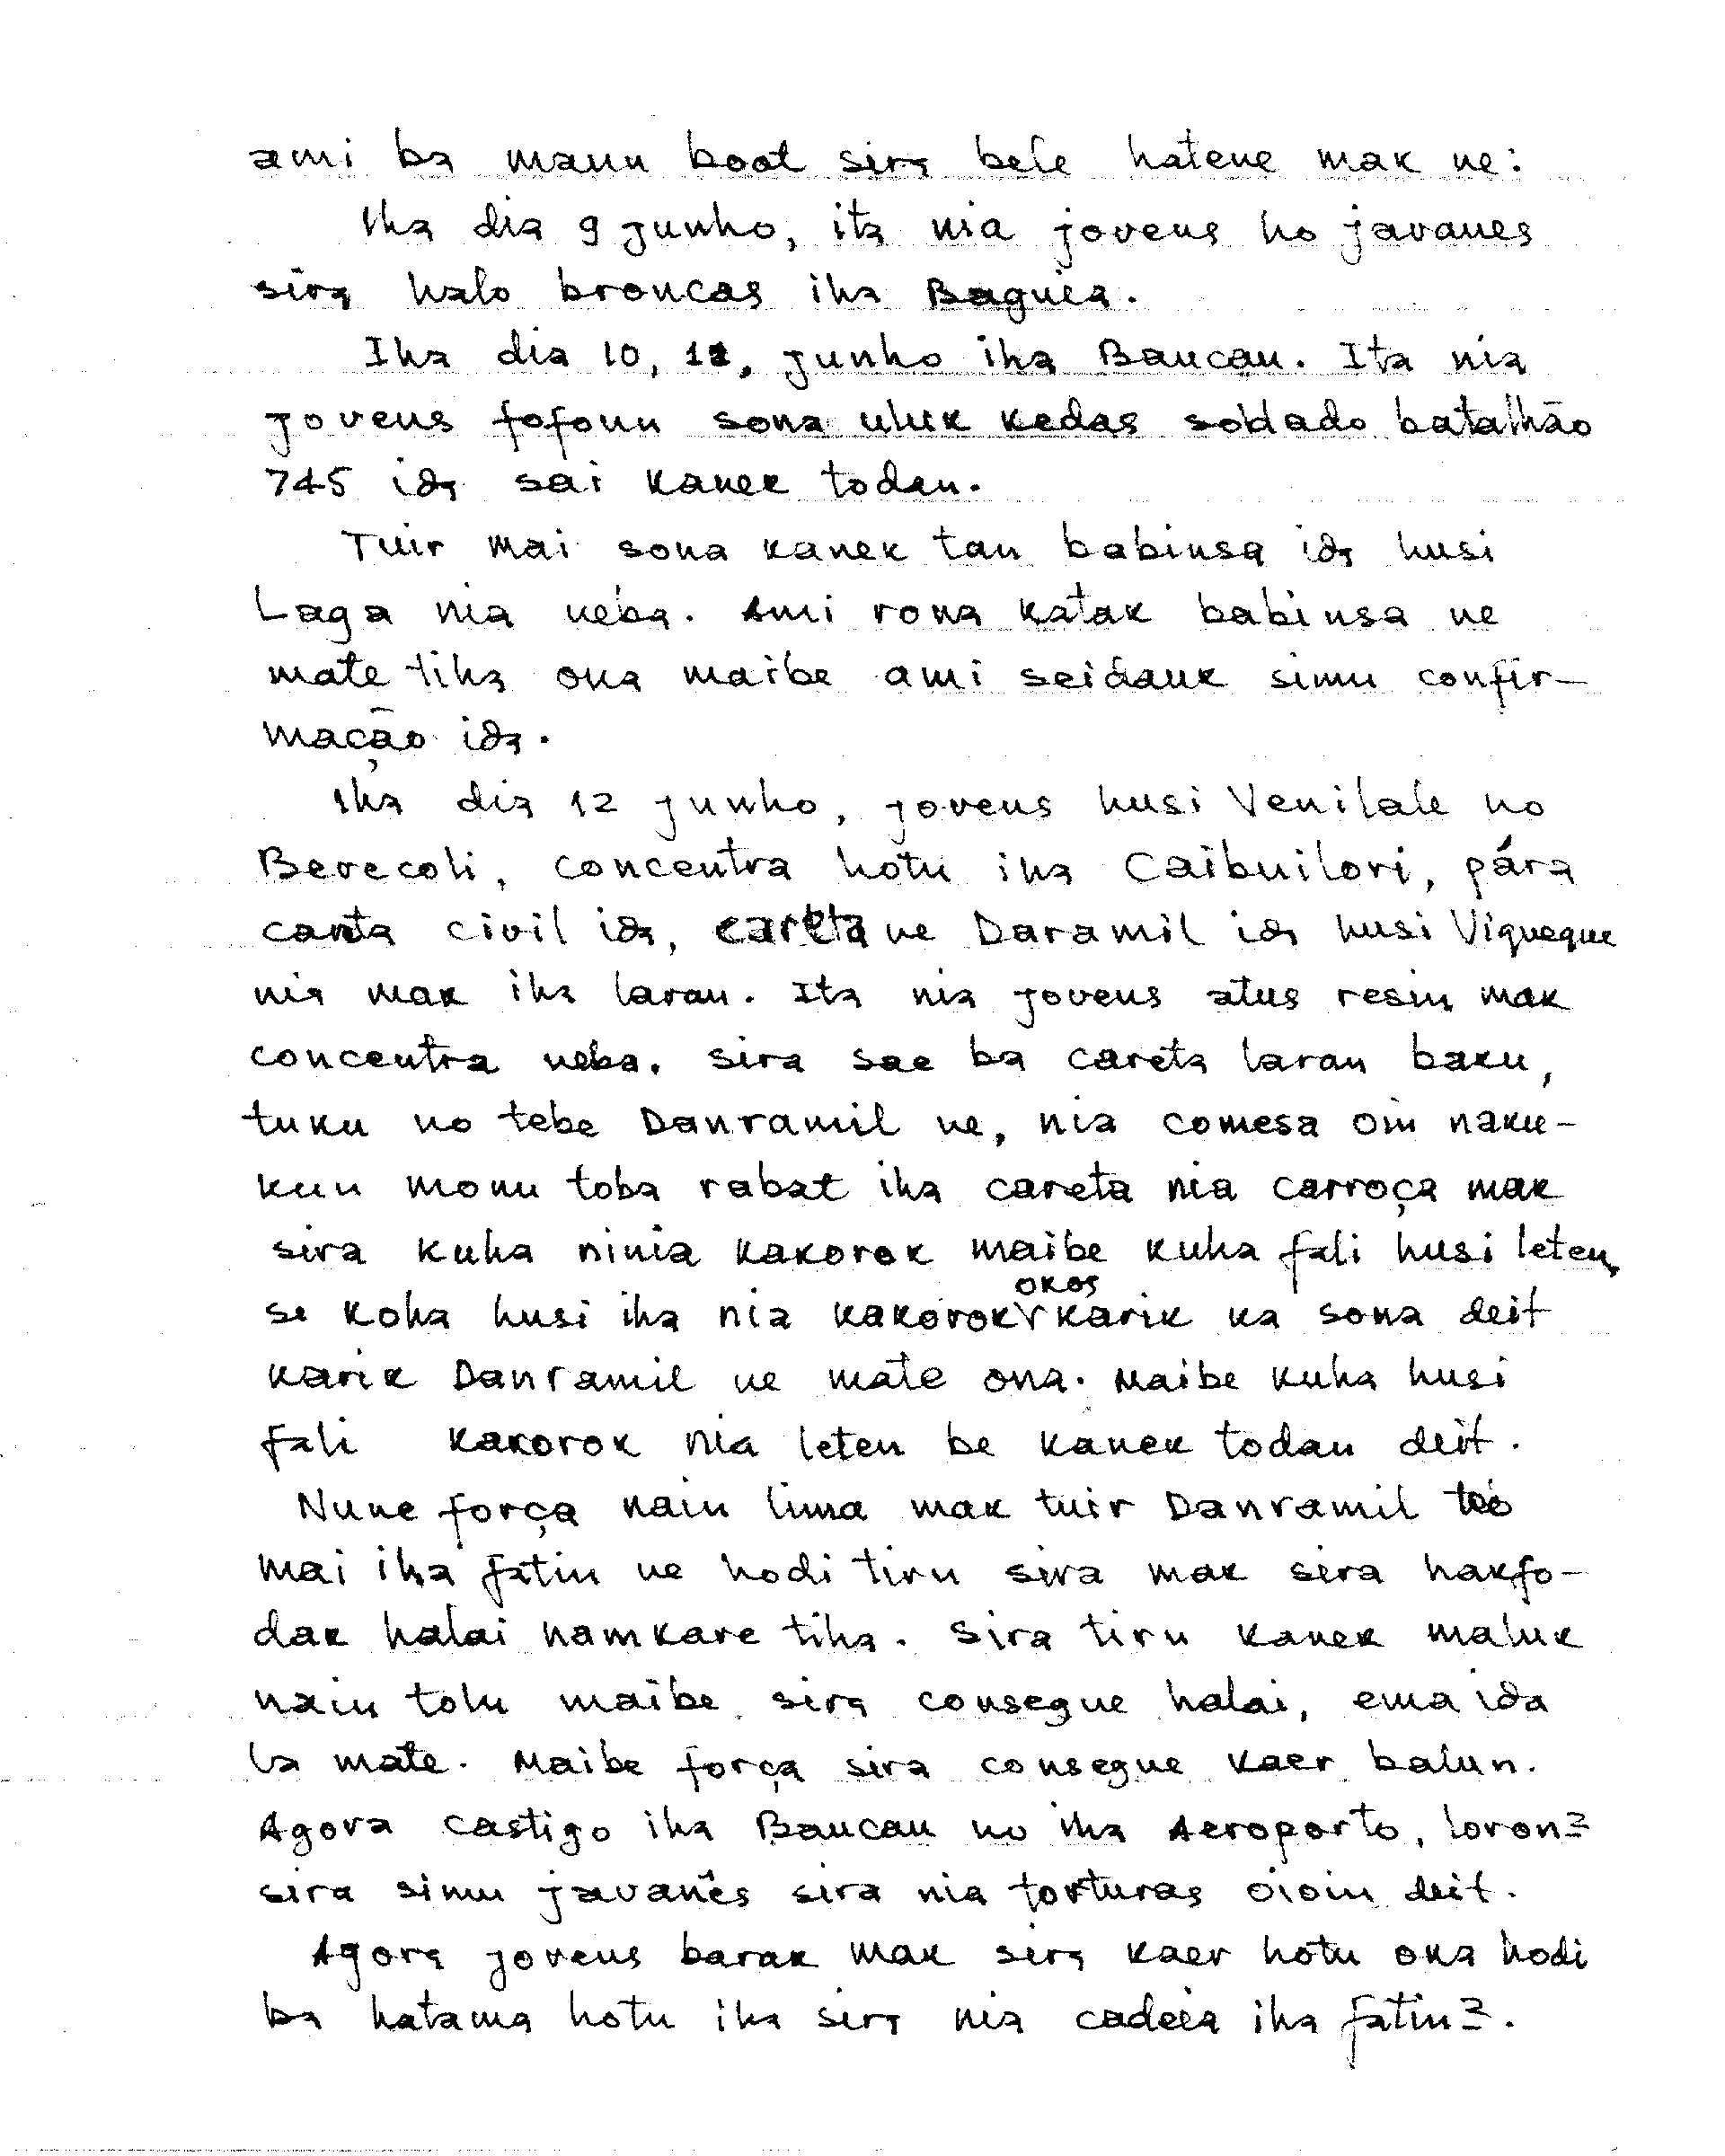 ami ba maun boot sira bele hatene mak ne:
Iha dia 9 junho, ita nia jovens ho javanes
sira halo broncas iha Baguia.
Iha dia 10, 12, junho iha Baucau. Ita nia
jovens fofoun sona uluk kedas soldado batalhão
745 ida sai kanek todan.
Tuir mai sona kanek tan babinsa ida husi
Laga nia neba. Ami rona katak babinsa ne
mate tiha ona maibe ami seidauk simu confir-
mação ida.
Iha dia 12 junho, jovens husi Venilale no
Berecoli, concentra hotu iha Caibuilori, pára
carita civil ida, careta ne Daramil ida husi Viqueque
nia mak iha laran. Ita nia jovens atus resin mak
concentra neba. Sira sae ba careta laran baku,
tuku no tebe Danramil ne, nia comesa oin naku-
kun monu toba rabat iha careta nia carroça mak
sira kuha ninia kakorok maibe kuha fali husi leten,
se koha husi iha nia kakorok okos karik ka sona deit
karik Danramil ne mate ona. Maibe kuha husi
fali kakorok nia leten be kanek todan deit.
Nune força nain lima mak tuir Danramil too
mai iha fatin ne hodi tiru sira mak sira hakfo-
dak halai namkare tiha. Sira tiru kanek maluk
nain tolu maibe sira consegue halai, ema ida
la mate. Maibe força sira consegue kaer balun.
Agora castigo iha Baucau no iha Aeroporto, loron2
sira simu javanês sira nia torturas oioin deit.
Agora jovens barak mak sira kaer hotu ona hodi
ba hatama hotu iha sira nia cadeia iha fatin2.